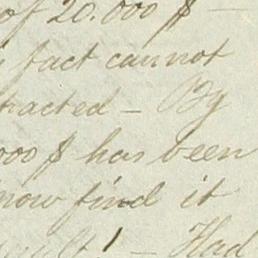 of 20.000 $ —
fact cannot
tracted — By
000 $ has been
now find it
— Had